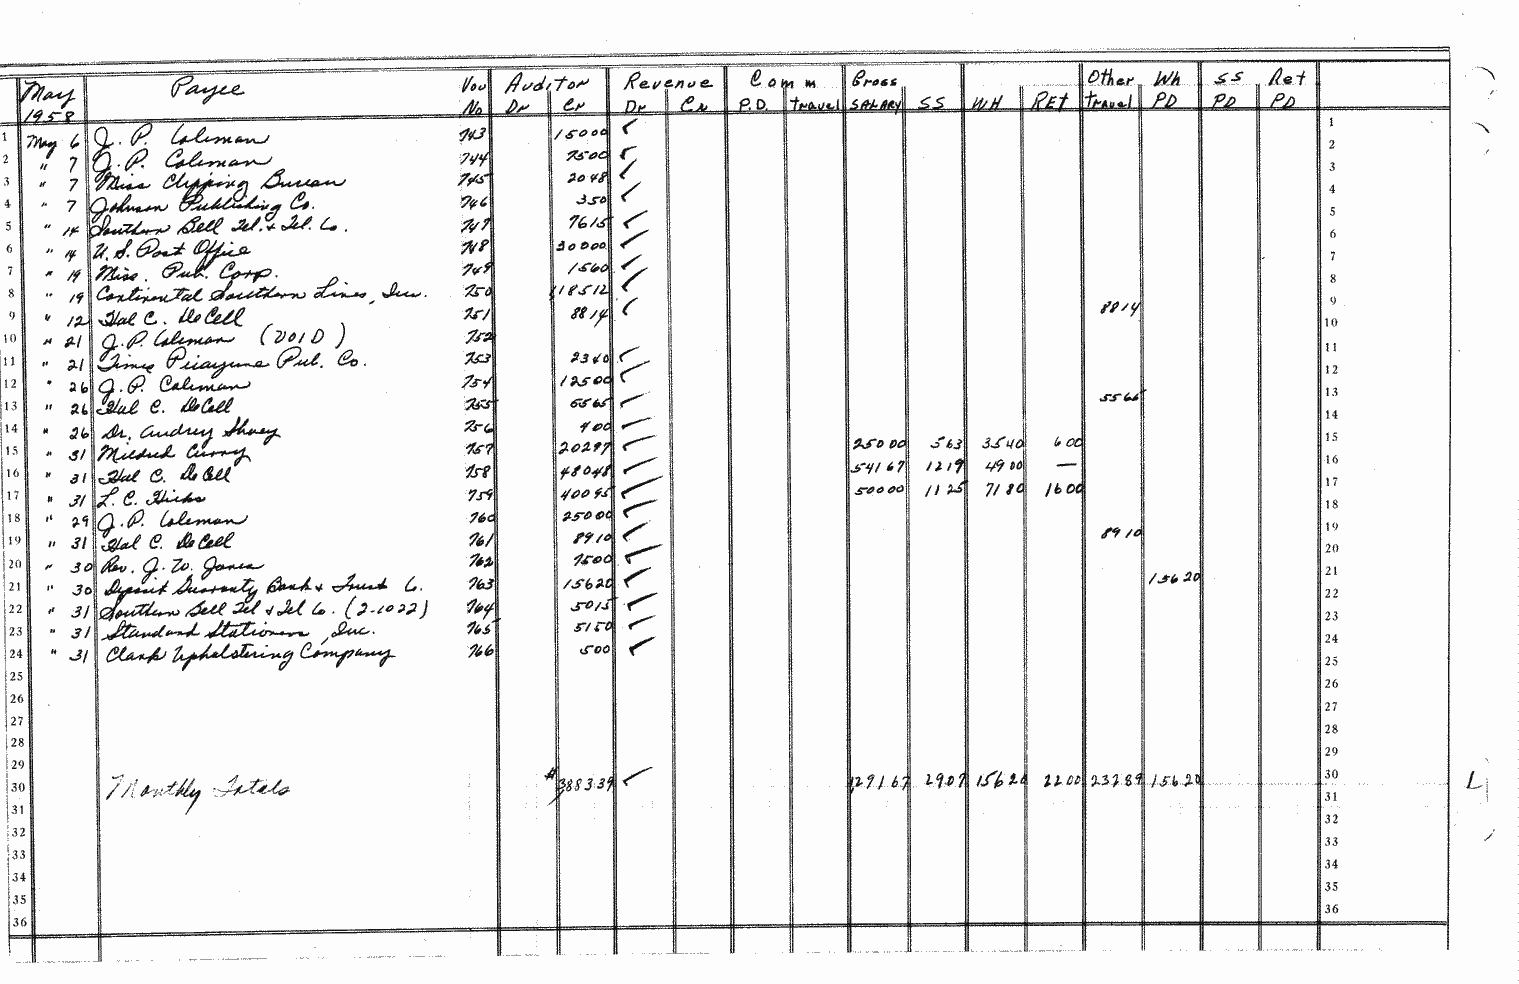 May 1958 Payee Vou No Auditor Dr Cr Revenue Dr Cr Comm P.D. Travel Gross SALARY SS WH RET Other Travel Wh PD SS PD Ret PD
1 May 6 J. P. Coleman 743 15000 ✓ 1
2 " 7 J. P. Coleman 744 7500 ✓ 2
3 " 7 Miss Clipping Bureau 745 2048 ✓ 3
4 " 7 Johnson Publishing Co. 746 350 ✓ 4
5 " 14 Southern Bell Tel. & Tel. Co. 747 7615 ✓ 5
6 " 14 U. S. Post Office 748 30000 ✓ 6
7 " 19 Miss. Pub. Corp. 749 1560 ✓ 7
8 " 19 Continental Southern Lines, Inc. 750 118512 ✓ 8
9 " 12 Hal C. DeCell 751 8814 ✓ 8814 9
10 " 21 J. P. Coleman (VOID) 752 10
11 " 21 Times Picayune Pub. Co. 753 2340 ✓ 11
12 " 26 J. P. Coleman 754 12500 ✓ 12
13 " 26 Hal C. DeCell 755 5565 ✓ 5565 13
14 " 26 Dr. Audrey 756 400 ✓ 14
15 " 31 Mildred Curry 757 20297 ✓ 25000 563 3540 600 15
16 " 31 Hal C. DeCell 758 48048 ✓ 54167 1219 4900 — 16
17 " 31 L. C. Hicks 759 40095 ✓ 50000 1125 7180 1600 17
18 " 29 J. P. Coleman 760 25000 ✓ 18
19 " 31 Hal C. DeCell 761 8910 ✓ 8910 19
20 " 30 Rev. J. W. Jones 762 7500 ✓ 20
21 " 30 Deposit Guaranty Bank & Trust Co. 763 15620 ✓ 15620 21
22 " 31 Southern Bell Tel & Tel Co. (2-1022) 764 5015 ✓ 22
23 " 31 Standard Stationers, Inc. 765 5150 ✓ 23
24 " 31 Clark Upholstering Company 766 500 ✓ 24
25 25
26 26
27 27
28 28
29 29
30 Monthly Totals #3883.39 ✓ 1,29167 2907 15620 2200 23289 15620 30
31 31
32 32
33 33
34 34
35 35
36 36